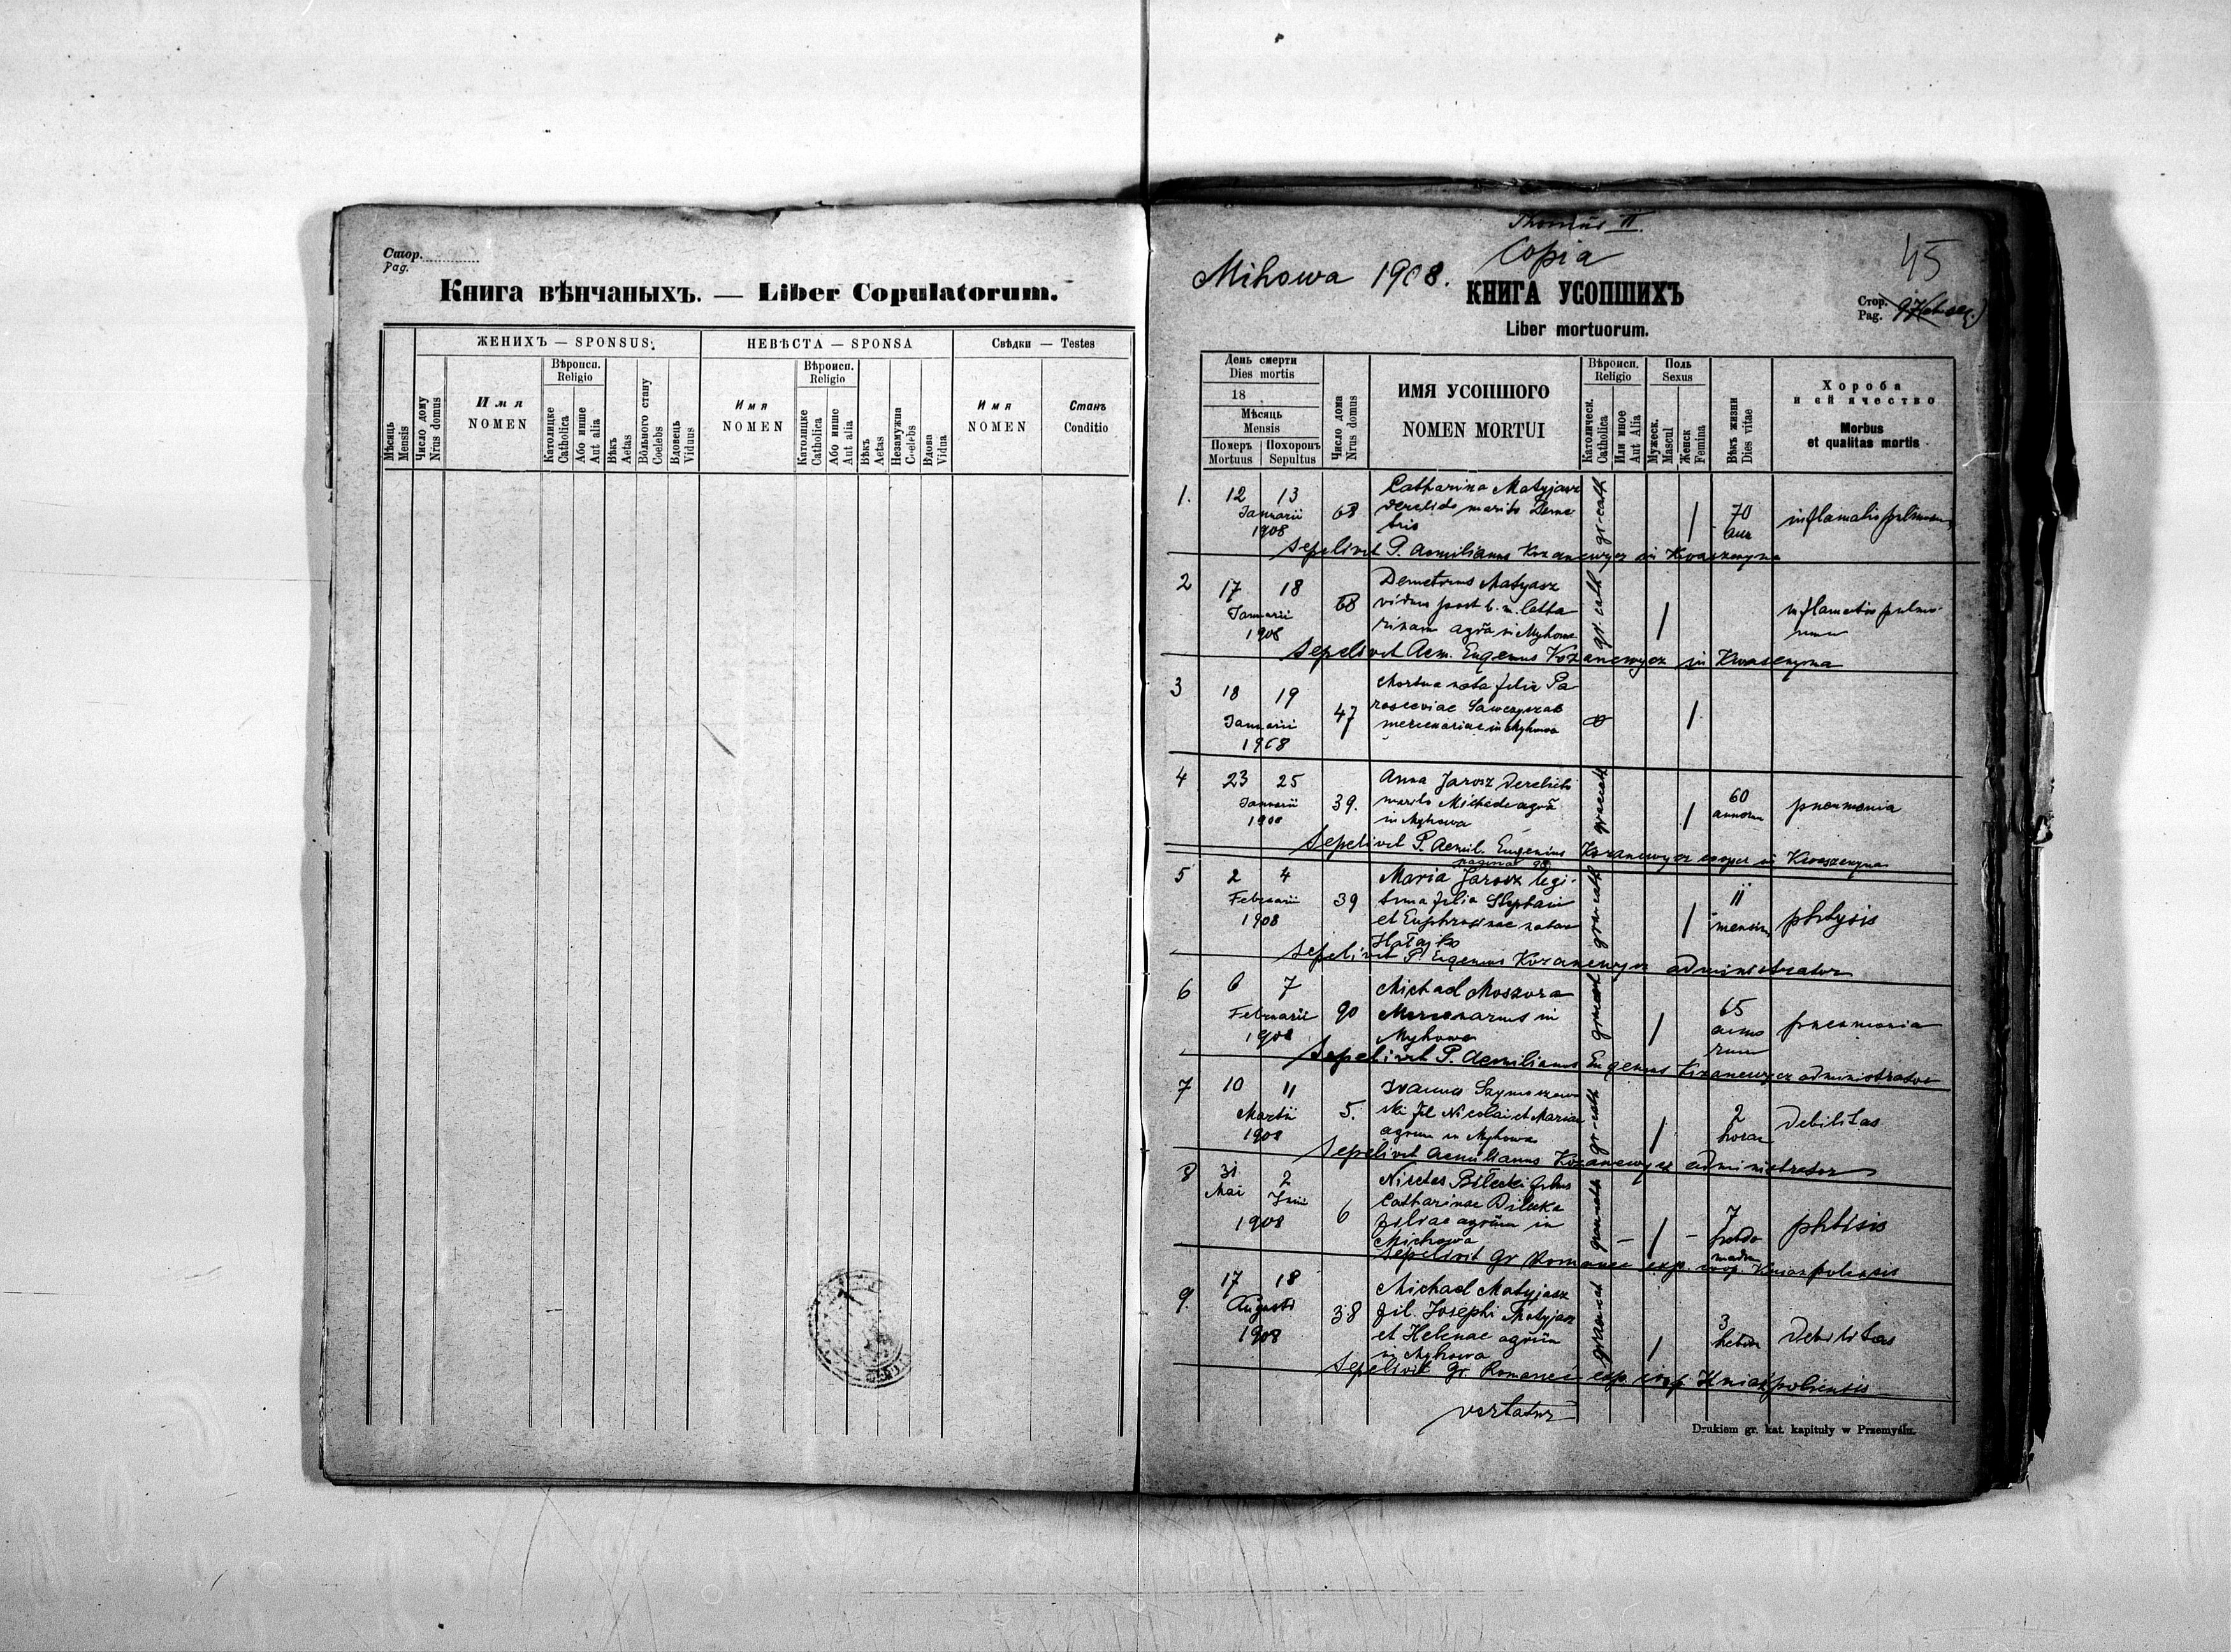 Стор.
Pag.
Книга вѣнчаныхъ. — Liber Copulatorum.
ЖЕНИХЪ — SPONSUS.
НЕВѢСТА — SPONSA
Свѣдки — Testes
Мѣсяць
Mensis
Число дому
Nrus domus
Имя
NOMEN
Вѣроисп.
Religio
Католицке
Catholica
Або инше
Aut alia
Вѣкъ
Aetas
Вôльного стану
Coelebs
Вдовець
Viduus
Имя
NOMEN
Вѣроисп.
Religio
Католицке
Catholica
Або инше
Aut alia
Вѣкъ
Aetas
Незамужна
Coelebs
Вдова
Vidua
Имя
NOMEN
Станъ
Conditio
Thomus II
Copia
45
Mihowa 1908.
КНИГА УСОПШИХЪ
Liber mortuorum.
Стор.
Pag. 97
День смерти
Dies mortis
18
Мѣсяць
Mensis
Померъ
Mortuus
Похоронъ
Sepultus
Число дома
Nrus domus
ИМЯ УСОПШОГО
NOMEN MORTUI
Вѣроисп.
Religio
Католическ.
Catholica
Или иное
Aut Alia
Поль
Sexus
Мужеск.
Mascul
Женск
Femina
Вѣкъ жизни
Dies vitae
Хороба
и еи ячество
Morbus
et qualitas mortis
1. 12 13 Catharina Matyjasz
Januarii 68 derelicto marito Deme 70 inflamatio pulmonum
1908 trio gr-cath
Sepelivit P. Aemilianus Kozanewycz in Kwaszenyna
2 17 18 Demetrius Matyasz
Januarii 68 viduus post b. m. Catha gr. cath inflamatio pulmo
1908 rinam in Myhowa num
Sepelivit Aem. Eugenius Kozanewycz in Kwaszenyna
3 18 19 Mortua nata filia Pa
Januarii 47 rasceviae
1908 mercenariae in Myhowa
4 23 25 Anna Jarosz derelicto
Januarii 39. marito Michaele 60 pneumonia
1908 in Myhowa
Sepelivit P. Aemil. Eugenius Kozanewycz in Kwaszenyna
5 2 4 Maria Jarosz legi
Februarii 39 tima filia Stephani 11 phtysis
1908 et Euphrosinae natae mensium
Sepelivit P. Eugenius Kozanewycz administrator
6 6 7 Michael Moszora
Februarii 90 Mercenarius in 65 pneumonia
1908 Myhowa anno rum
Sepelivit P. Aemilianus Eugenius Kozanewycz administrator
7 10 11
Martii 5. fil Nicolai et Mariae 2 debilitas
1908 in Myhowa horae gr-cath
Sepelivit Aemilianus Kozanewycz administrator
8 31 2 Nicetas Bilecki filius
Mai Junii 6 Catharinae Bilecka 7 phtisis
1908 filiae in hebdo
Michowa madum
Sepelivit Gr Romanec exp. coop. Kniazpolensis
9. 17 18 Michael Matyjasz
Augusti 38 fil. Josephi Matyjasz 3 Debilitas
1908 et Helenae hebdo
in Myhowa
Sepelivit Gr. Romanec exp. coop. Kniazpolensis
vertatur
Drukiem gr. kat. kapituły w Przemyślu.